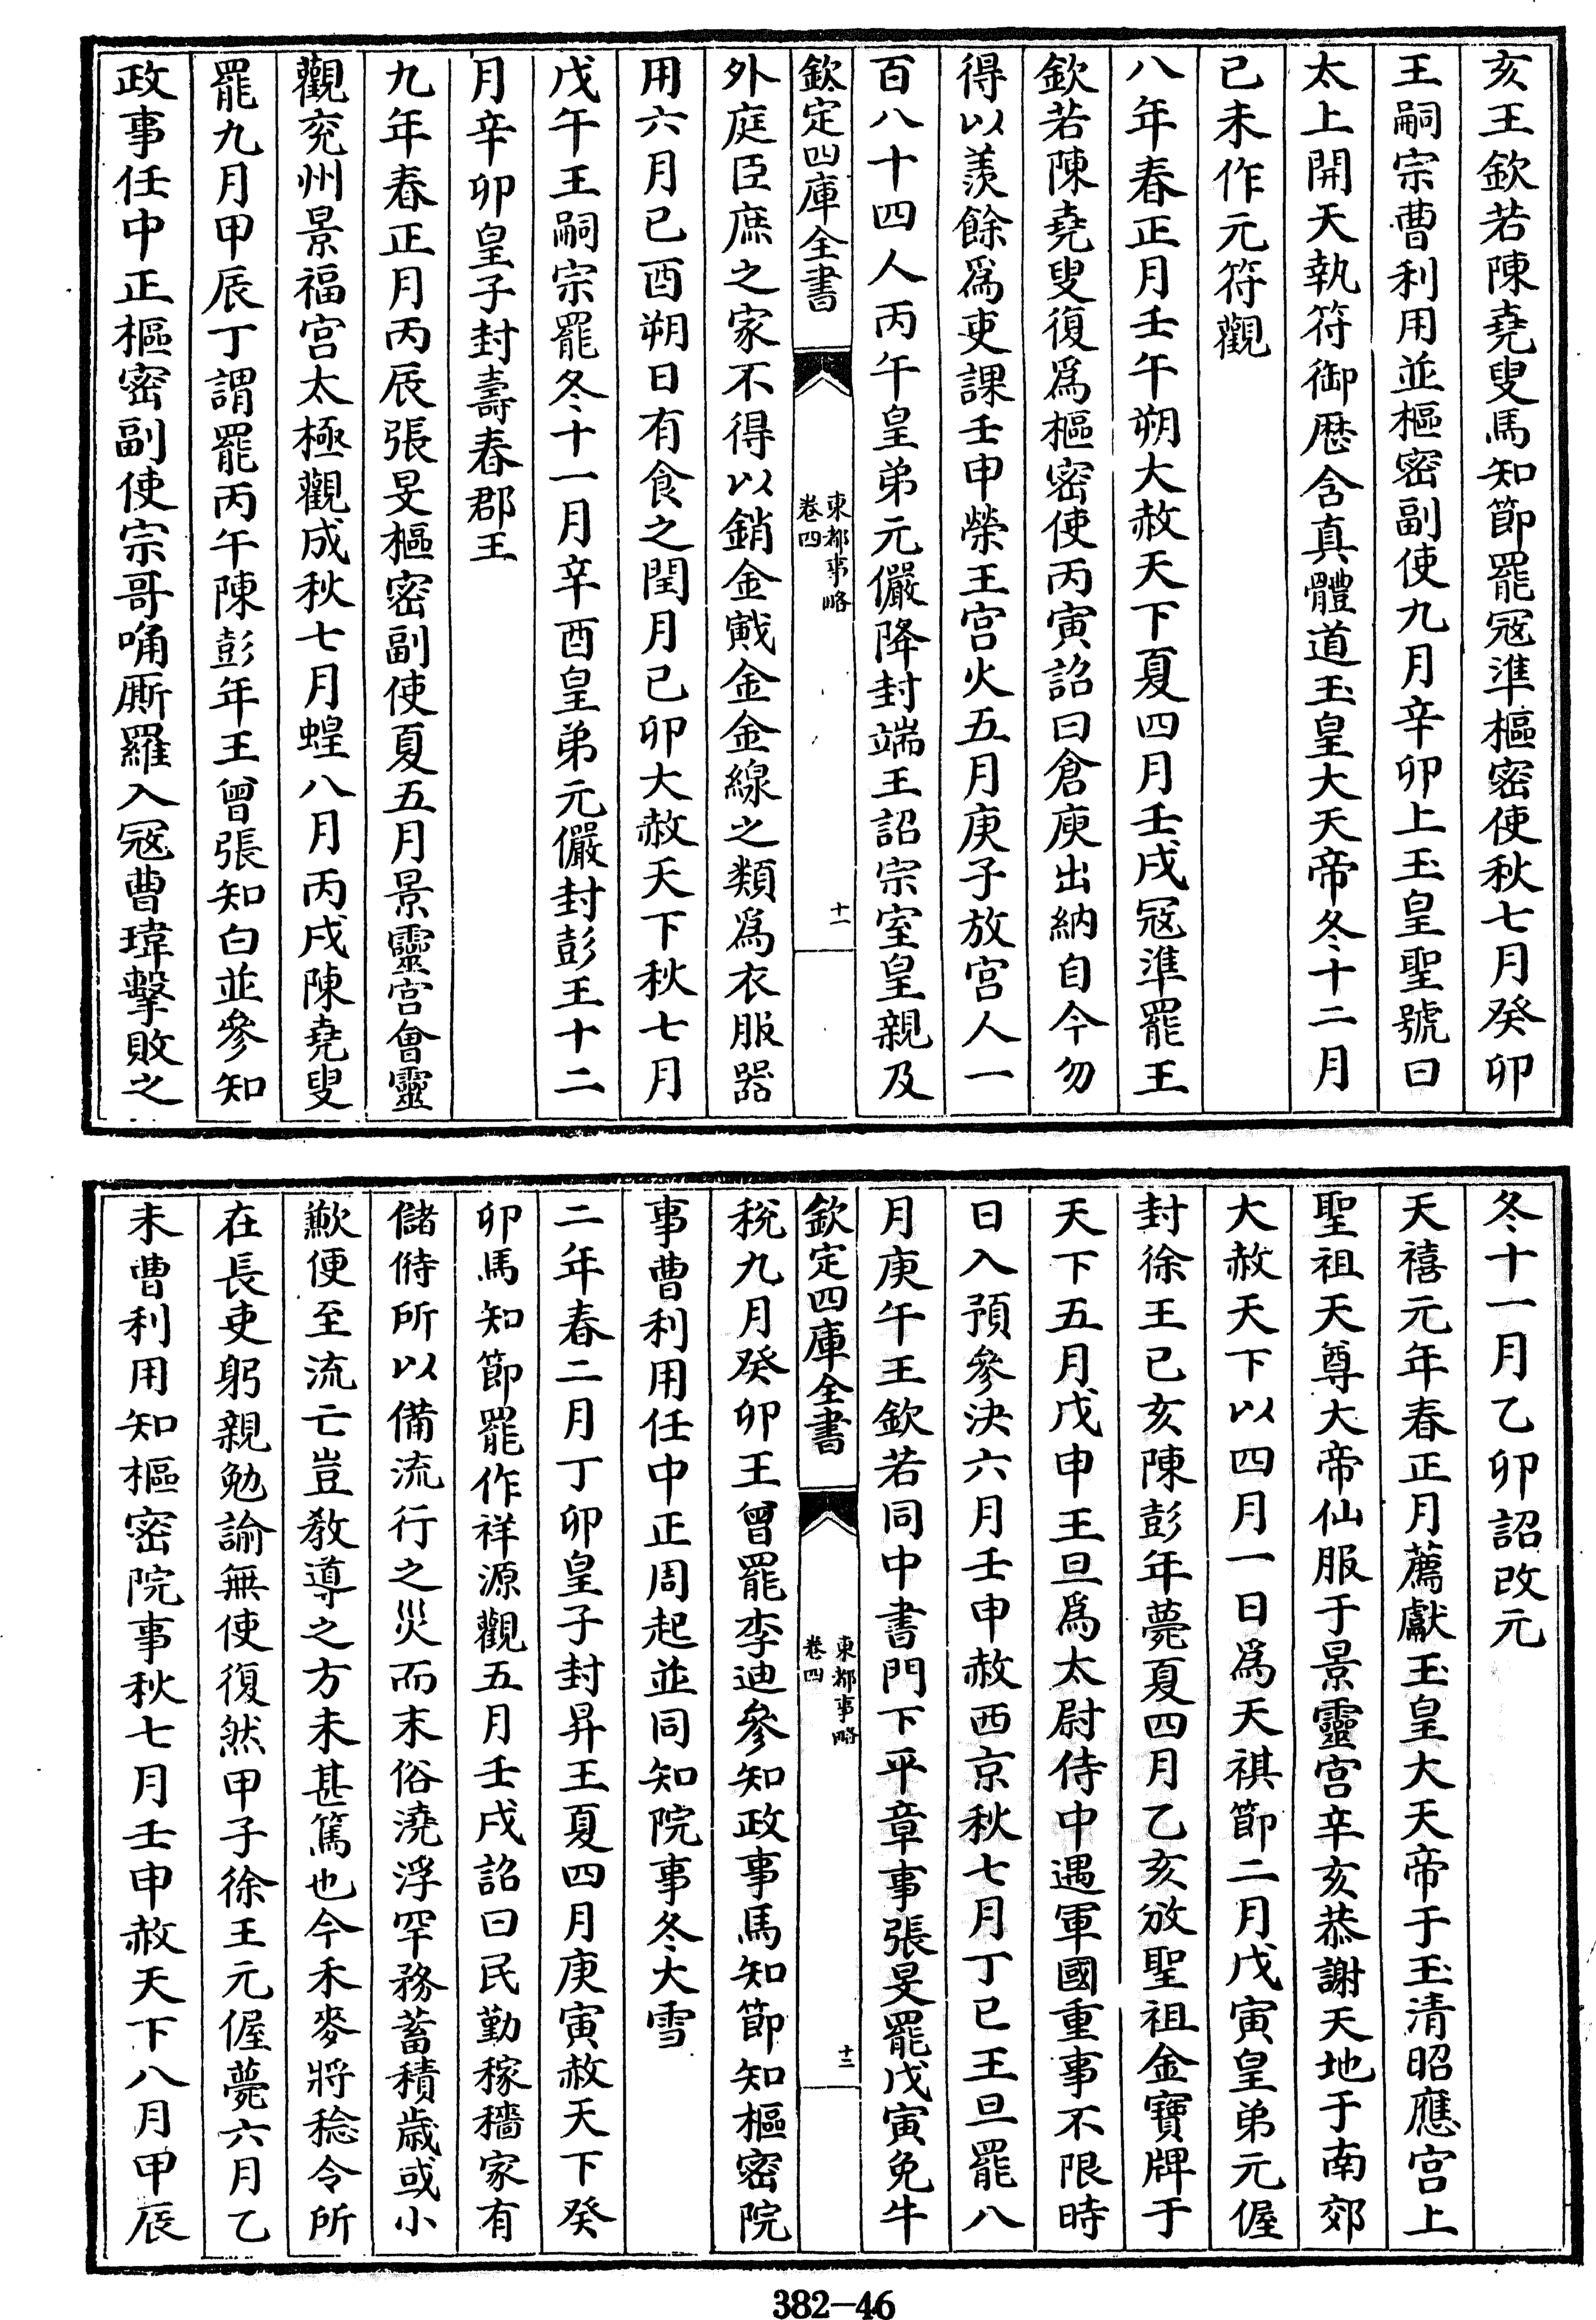 亥王欽若陳堯叟馬知節罷冦準樞密使秋七月癸卯
王嗣宗曹利用並樞密副使九月辛卯上玉皇聖號曰
太上開天執符御歷含真體道玉皇大天帝冬十二月
已未作元符觀
八年春正月壬午朔大赦天下夏四月壬戌冦準罷王
欽若陳堯叟復爲樞密使丙寅詔曰倉庾出納自今勿
得以羨餘爲吏課壬申榮王宫火五月庚子放宫人一
百八十四人丙午皇弟元儼降封端王詔宗室皇親及
欽定四庫全書
東都事略
卷四
十一
外庭臣庶之家不得以銷金戭金金線之類爲衣服器
用六月已酉朔日有食之閏月已卯大赦天下秋七月
戊午王嗣宗罷冬十一月辛酉皇弟元儼封彭王十二
月辛卯皇子封壽春郡王
九年春正月丙辰張旻樞密副使夏五月景靈宫會靈
觀兖州景福宫太極觀成秋七月蝗八月丙戌陳堯叟
罷九月甲辰丁謂罷丙午陳彭年王曾張知白並參知
政事任中正樞密副使宗哥唃厮羅入冦曹瑋擊敗之
冬十一月乙卯詔改元
天禧元年春正月薦獻玉皇大天帝于玉清昭應宫上
聖祖天尊大帝仙服于景靈宫辛亥恭謝天地于南郊
大赦天下以四月一日爲天祺節二月戊寅皇弟元偓
封徐王已亥陳彭年薨夏四月乙亥放聖祖金寶牌于
天下五月戊申王旦爲太尉侍中遇軍國重事不限時
日入預參決六月壬申赦西京秋七月丁已王旦罷八
月庚午王欽若同中書門下平章事張旻罷戊寅免牛
欽定四庫全書
東都事略
卷四
十二
稅九月癸卯王曾罷李迪參知政事馬知節知樞密院
事曹利用任中正周起並同知院事冬大雪
二年春二月丁卯皇子封昇王夏四月庚寅赦天下癸
卯馬知節罷作祥源觀五月壬戌詔曰民勤稼穡家有
儲偫所以備流行之災而末俗澆浮罕務蓄積歲或小
歉便至流亡豈教導之方未甚篤也今禾麥將稔令所
在長吏躬親勉諭無使復然甲子徐王元偓薨六月乙
未曹利用知樞密院事秋七月壬申赦天下八月甲辰
382-46